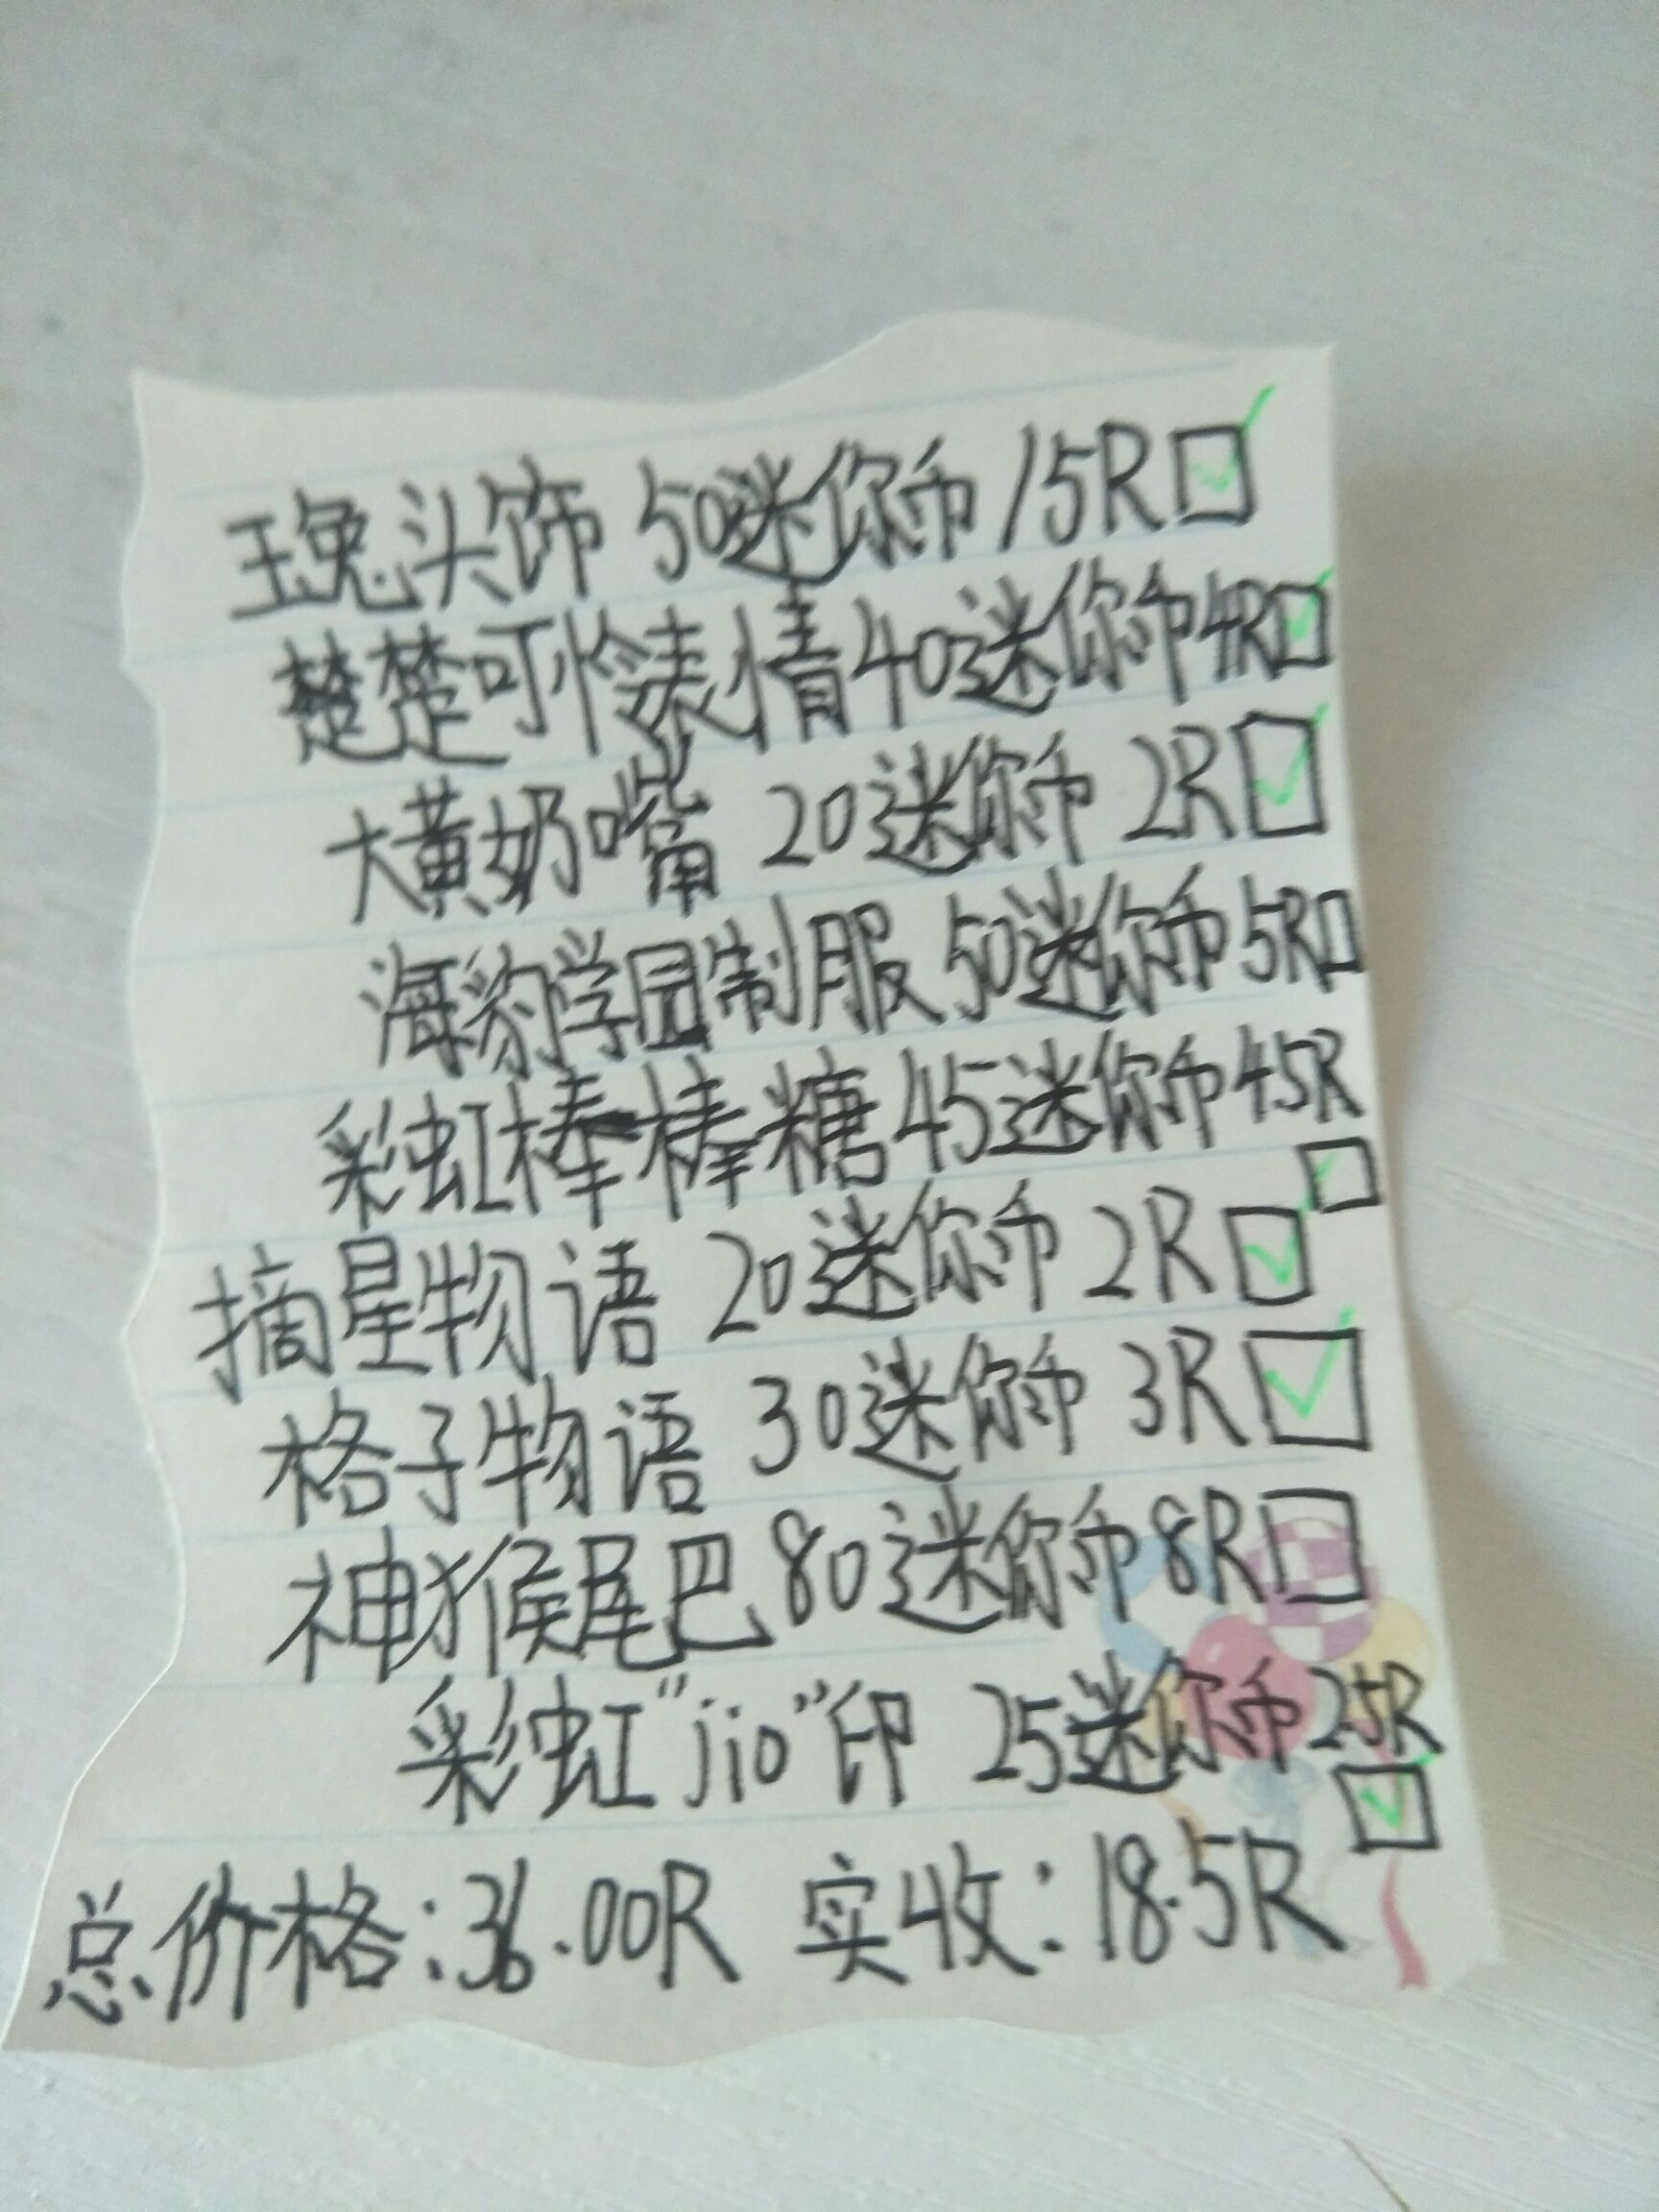 玉兔头饰 50迷你币 15R
楚楚可怜表情40迷你币4R
大黄奶嘴 20迷你币 2R
海豹学园制服 50迷你币5R
彩虹棒棒糖45迷你币4.5R
摘星物语 20迷你币 2R
格子物语 30迷你币 3R
神猴尾巴80迷你币8R
彩虹"jio"印 25迷你币2.5R
总价格:36.00R 实收:18.5R